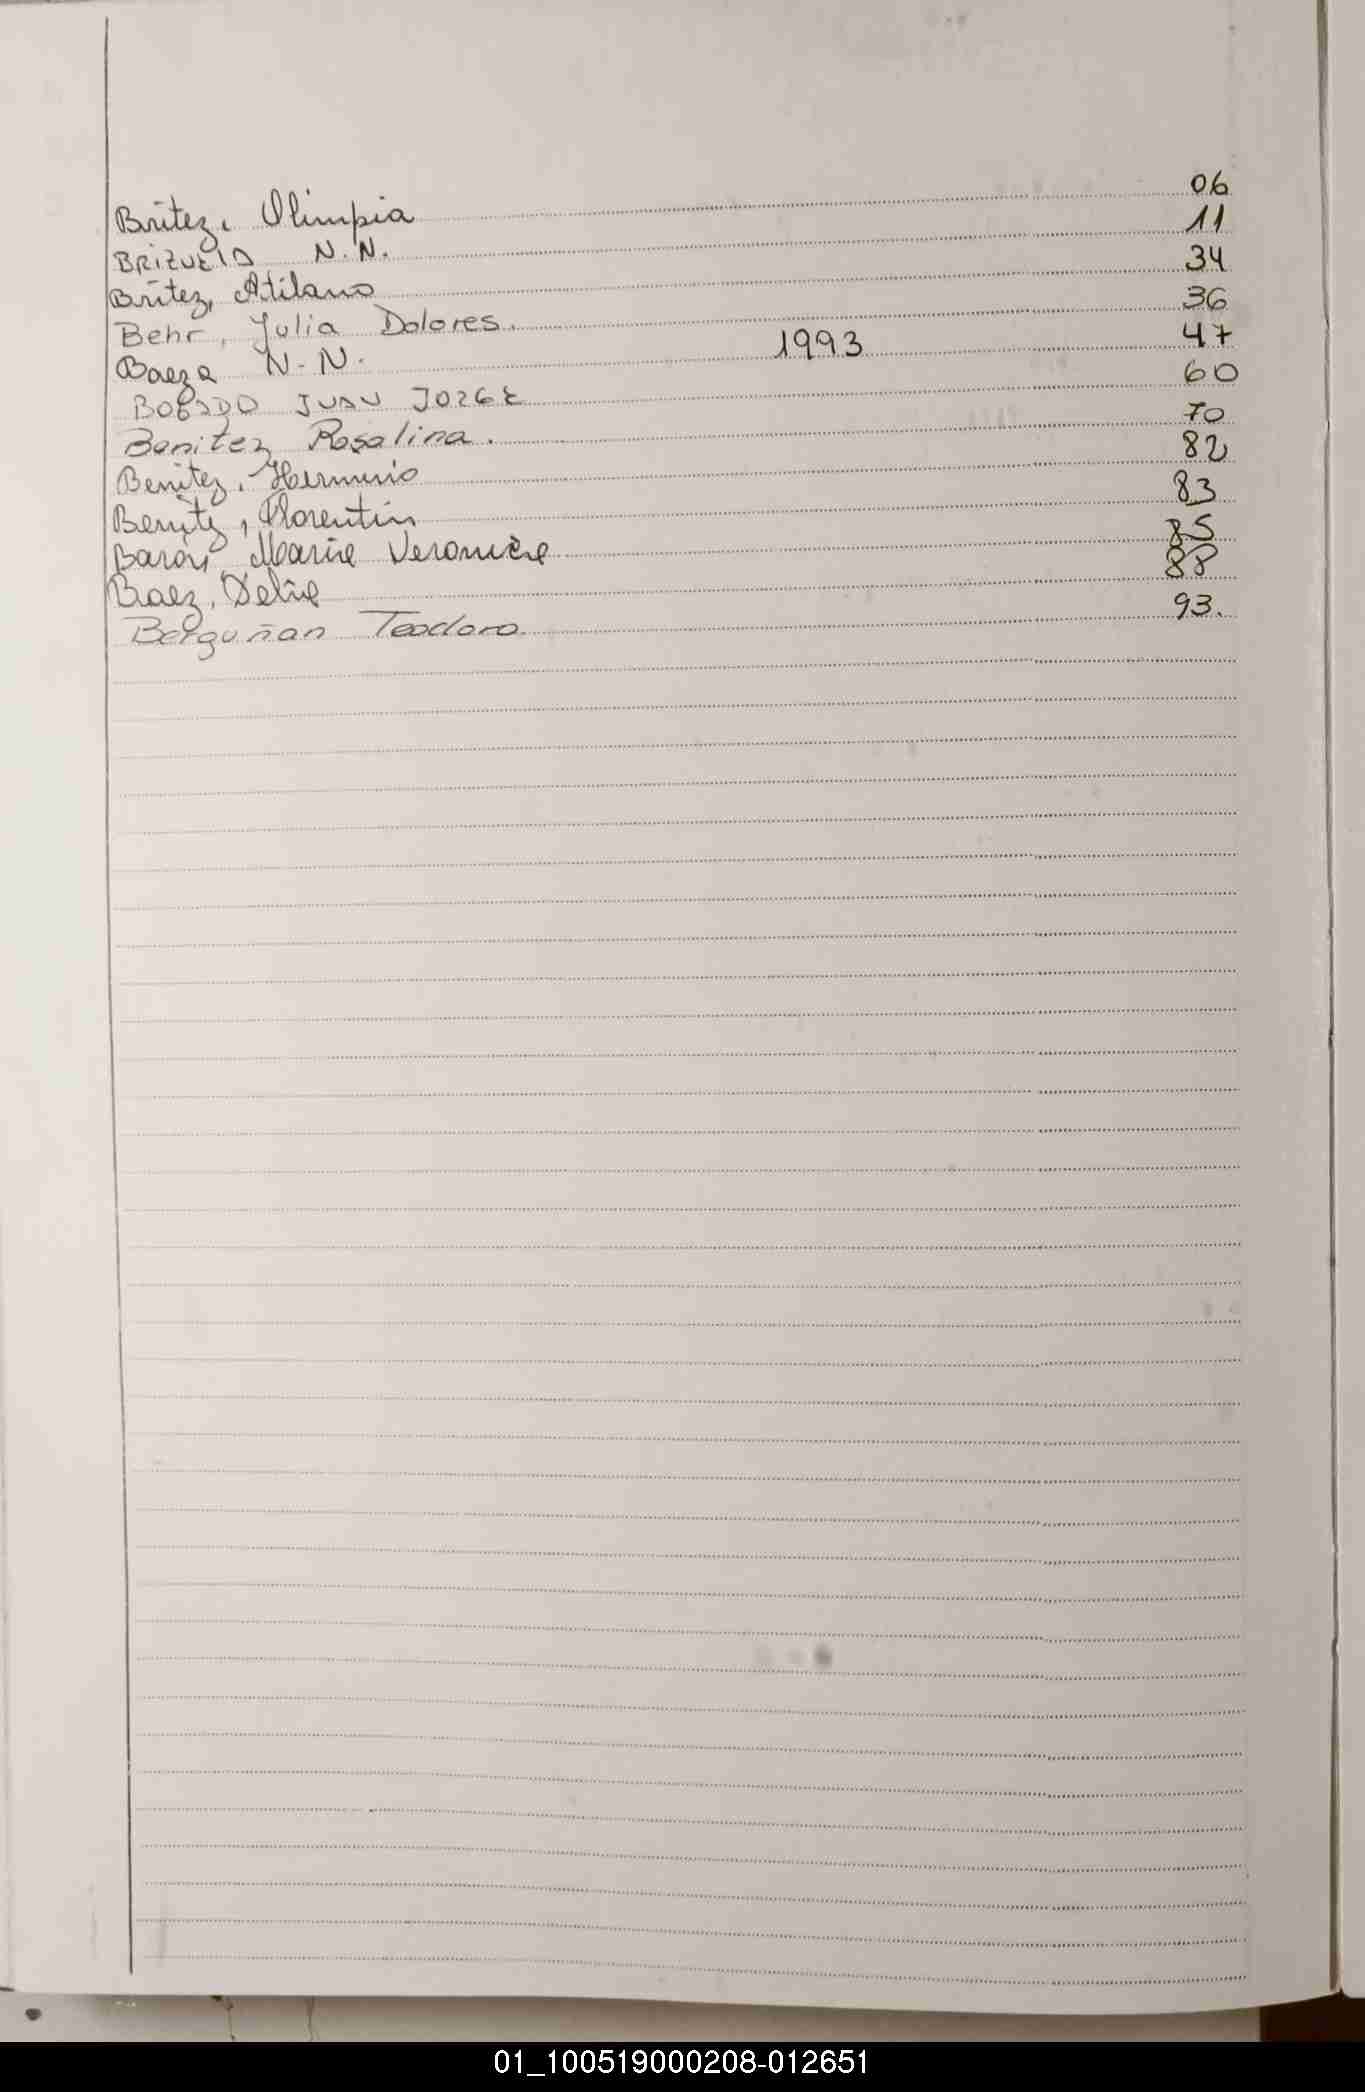 Britez, Olimpia 06
BRIZUELA N.N. 11
Britez, Atilano 34
Behr, Julia Dolores. 36
Baeza N-N. 1993 47
BOGADO JUAN JORGE 60
Benitez Rosalina. 70
Benitez, Herminio 82
Benitz, Florentin 83
Barón, Maria Veronica 85
Baez, Delia 88
Berguñan Teodoro 93.
01_100519000208-012651